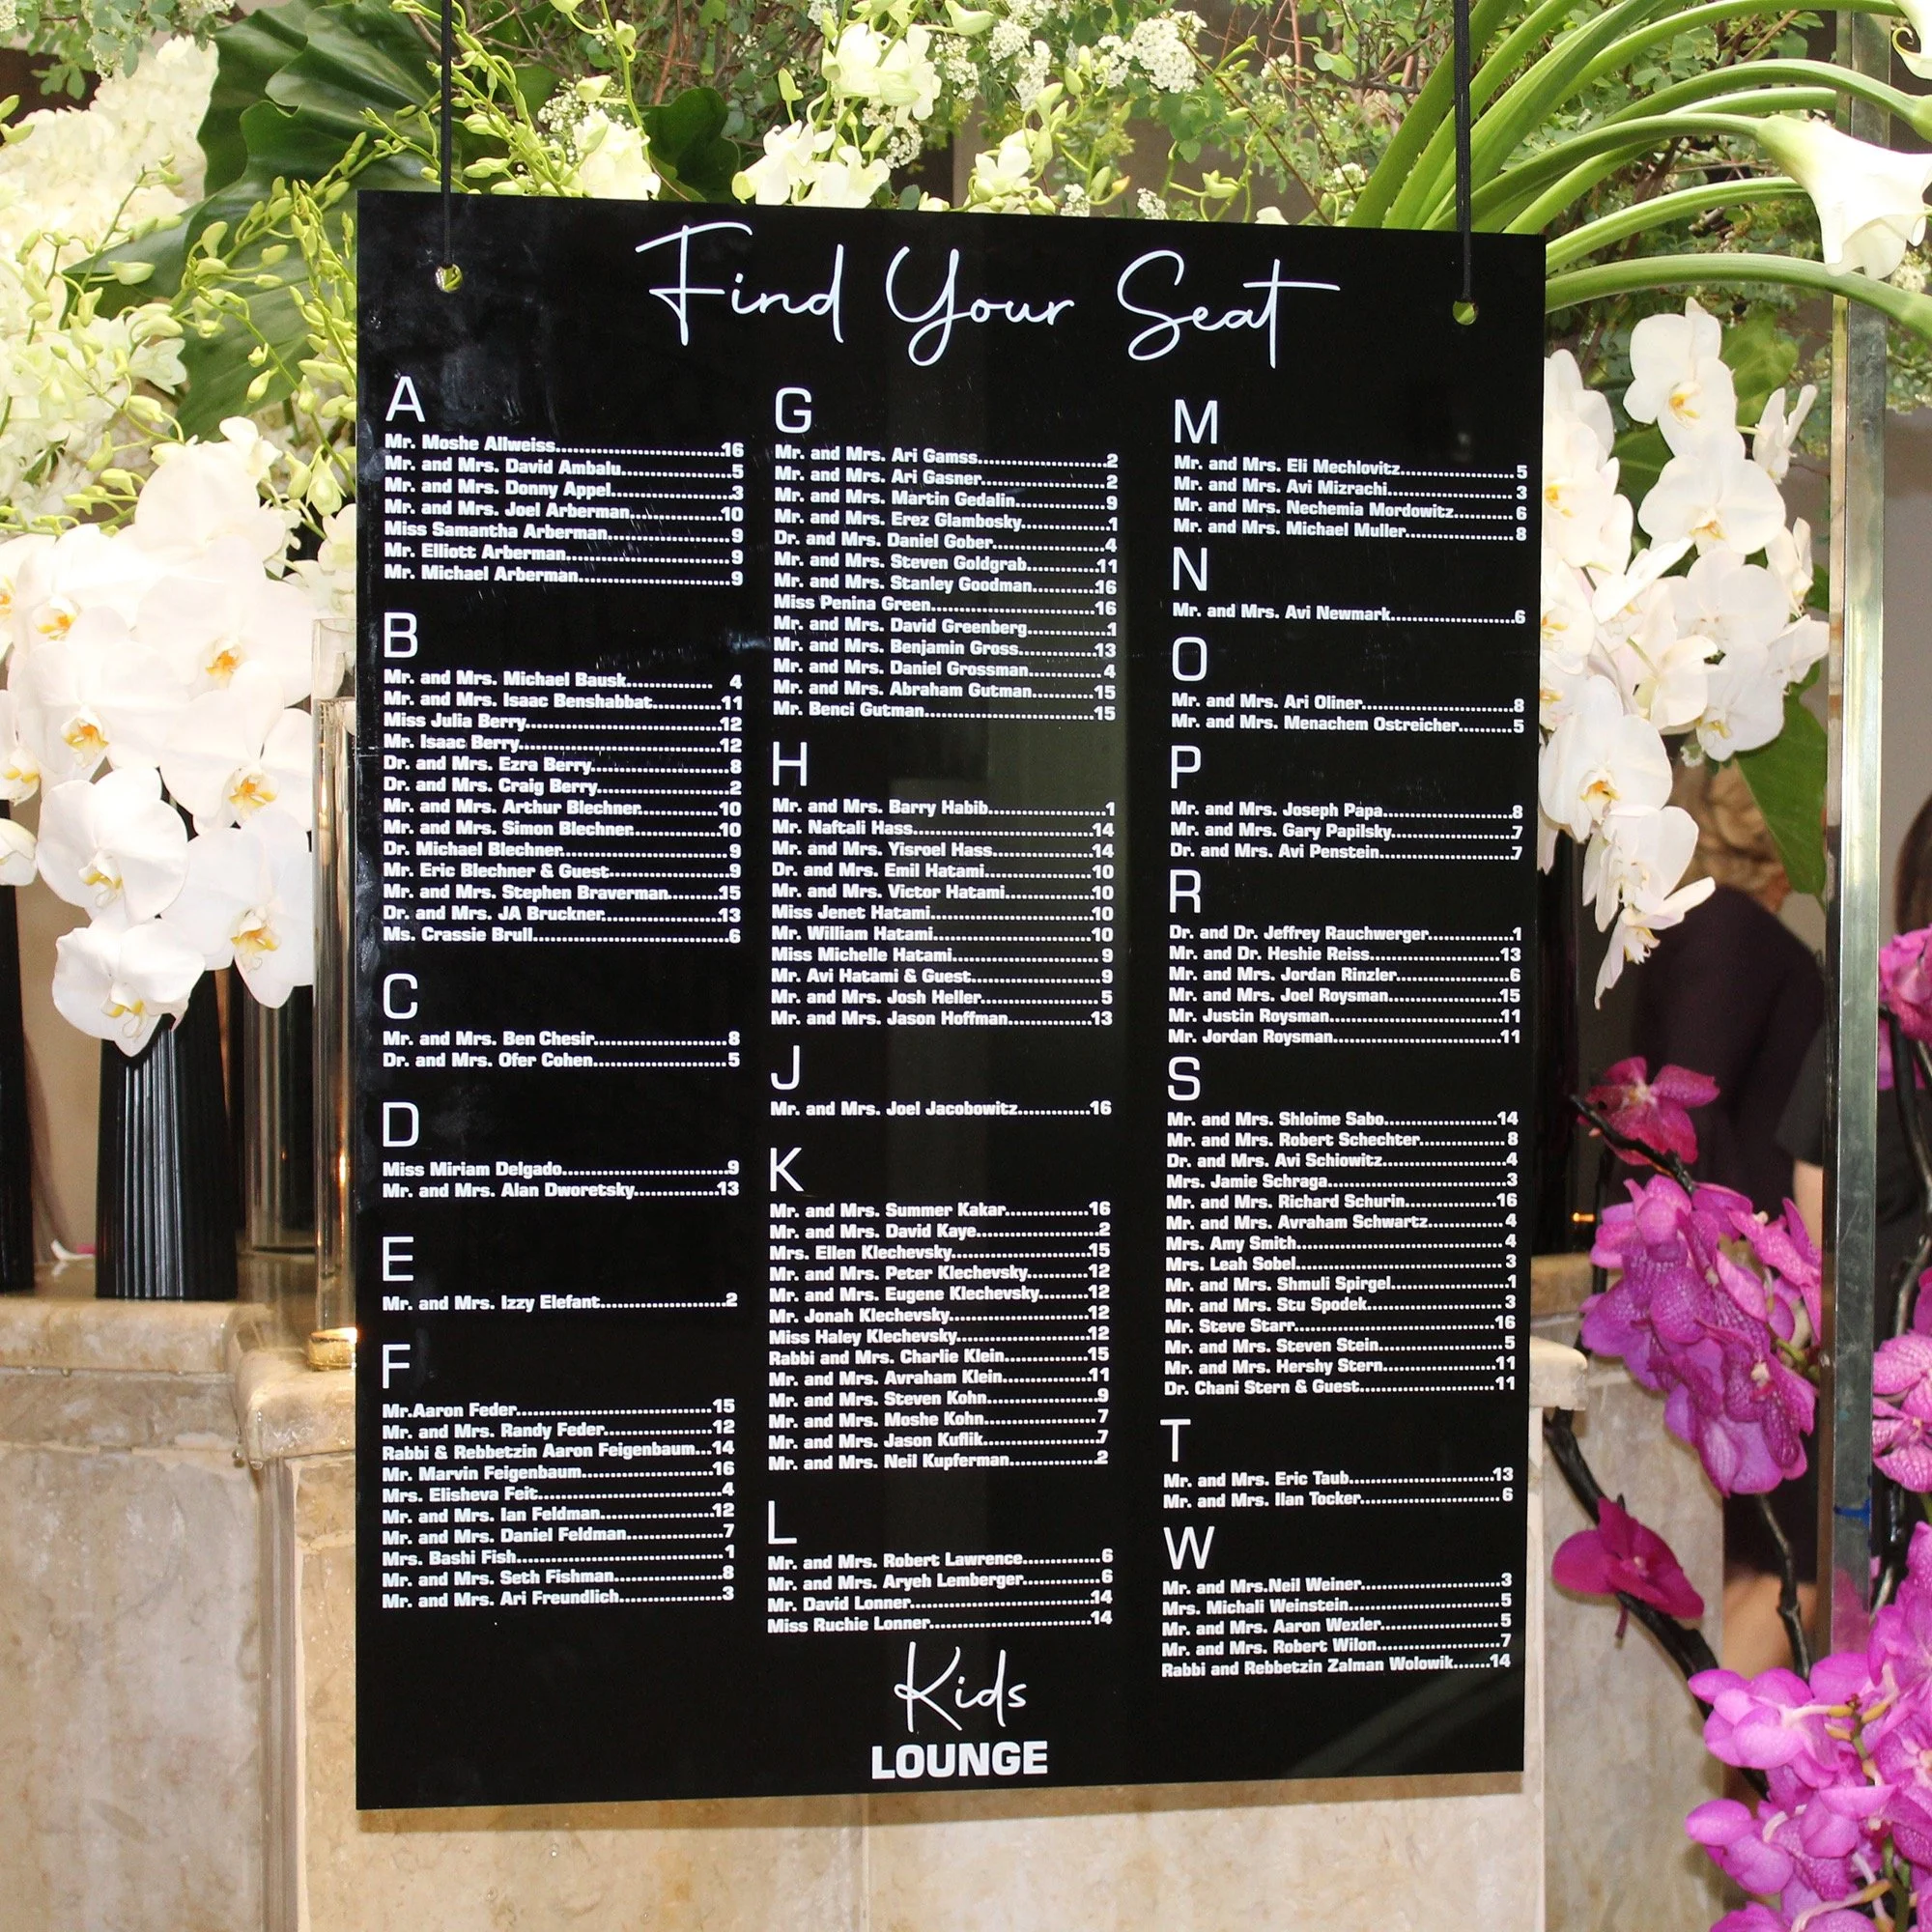 Find Your Seat
A
Mr. Moshe Allweiss...16
Mr. and Mrs. David Ambalu...5
Mr. and Mrs. Donny Appel...3
Mr. and Mrs. Joel Arberman...10
Miss Samantha Arberman...9
Mr. Elliott Arberman...9
Mr. Michael Arberman...9
B
Mr. and Mrs. Michael Bausk... 4
Mr. and Mrs. Isaac Benshabbat...11
Miss Julia Berry...12
Mr. Isaac Berry...12
Dr. and Mrs. Ezra Berry...8
Dr. and Mrs. Craig Berry...2
Mr. and Mrs. Arthur Blechner...10
Mr. and Mrs. Simon Blechner...10
Dr. Michael Blechner...9
Mr. Eric Blechner & Guest...9
Mr. and Mrs. Stephen Braverman...15
Dr. and Mrs. JA Bruckner...13
Ms. Crassie Brull...6
C
Mr. and Mrs. Ben Chesir...8
Dr. and Mrs. Ofer Cohen...5
D
Miss Miriam Delgado...9
Mr. and Mrs. Alan Dworetsky...13
E
Mr. and Mrs. Izzy Elefant...2
F
Mr.Aaron Feder...15
Mr. and Mrs. Randy Feder...12
Rabbi & Rebbetzin Aaron Feigenbaum...14
Mr. Marvin Feigenbaum...16
Mrs. Elisheva Feit...4
Mr. and Mrs. Ian Feldman...12
Mr. and Mrs. Daniel Feldman...7
Mrs. Bashi Fish...1
Mr. and Mrs. Seth Fishman...8
Mr. and Mrs. Ari Freundlich...3
G
Mr. and Mrs. Ari Gamss...2
Mr. and Mrs. Ari Gasner...2
Mr. and Mrs. Martin Gedalin...9
Mr. and Mrs. Erez Glambosky...1
Dr. and Mrs. Daniel Gober...4
Mr. and Mrs. Steven Goldgrab...11
Mr. and Mrs. Stanley Goodman...16
Miss Penina Green...16
Mr. and Mrs. David Greenberg...1
Mr. and Mrs. Benjamin Gross...13
Mr. and Mrs. Daniel Grossman...4
Mr. and Mrs. Abraham Gutman...15
Mr. Benci Gutman...15
H
Mr. and Mrs. Barry Habib...1
Mr. Naftali Hass...14
Mr. and Mrs. Yisroel Hass...14
Dr. and Mrs. Emil Hatami...10
Mr. and Mrs. Victor Hatami...10
Miss Jenet Hatami...10
Mr. William Hatami...10
Miss Michelle Hatami...9
Mr. Avi Hatami & Guest...9
Mr. and Mrs. Josh Heller...5
Mr. and Mrs. Jason Hoffman...13
J
Mr. and Mrs. Joel Jacobowitz...16
K
Mr. and Mrs. Summer Kakar...16
Mr. and Mrs. David Kaye...2
Mrs. Ellen Klechevsky...15
Mr. and Mrs. Peter Klechevsky...12
Mr. and Mrs. Eugene Klechevsky...12
Mr. Jonah Klechevsky...12
Miss Haley Klechevsky...12
Rabbi and Mrs. Charlie Klein...15
Mr. and Mrs. Avraham Klein...11
Mr. and Mrs. Steven Kohn...9
Mr. and Mrs. Moshe Kohn...7
Mr. and Mrs. Jason Kuflik...7
Mr. and Mrs. Neil Kupferman...2
L
Mr. and Mrs. Robert Lawrence...6
Mr. and Mrs. Aryeh Lemberger...6
Mr. David Lonner...14
Miss Ruchie Lonner...14
Kids
LOUNGE
M
Mr. and Mrs. Eli Mechlovitz...5
Mr. and Mrs. Avi Mizrachi...3
Mr. and Mrs. Nechemia Mordowitz...6
Mr. and Mrs. Michael Muller...8
N
Mr. and Mrs. Avi Newmark...6
O
Mr. and Mrs. Ari Oliner...8
Mr. and Mrs. Menachem Ostreicher...5
P
Mr. and Mrs. Joseph Papa...8
Mr. and Mrs. Gary Papilsky...7
Dr. and Mrs. Avi Penstein...7
R
Dr. and Dr. Jeffrey Rauchwerger...1
Mr. and Dr. Heshie Reiss...13
Mr. and Mrs. Jordan Rinzler...6
Mr. and Mrs. Joel Roysman...15
Mr. Justin Roysman...11
Mr. Jordan Roysman...11
S
Mr. and Mrs. Shloime Sabo...14
Mr. and Mrs. Robert Schechter...8
Dr. and Mrs. Avi Schiowitz...4
Mrs. Jamie Schraga...3
Mr. and Mrs. Richard Schurin...16
Mr. and Mrs. Avraham Schwartz...4
Mrs. Amy Smith...4
Mrs. Leah Sobel...3
Mr. and Mrs. Shmuli Spirgel...1
Mr. and Mrs. Stu Spodek...3
Mr. Steve Starr...16
Mr. and Mrs. Steven Stein...5
Mr. and Mrs. Hershy Stern...11
Dr. Chani Stern & Guest...11
T
Mr. and Mrs. Eric Taub...13
Mr. and Mrs. Ilan Tocker...6
W
Mr. and Mrs.Neil Weiner...3
Mrs. Michali Weinstein...5
Mr. and Mrs. Aaron Wexler...5
Mr. and Mrs. Robert Wilon...7
Rabbi and Rebbetzin Zalman Wolowik...14